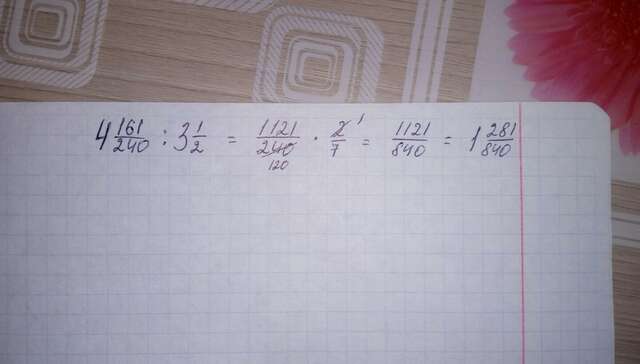 4 161/240 : 3 1/2 = 1121/240 120 · 2/7 1 = 1121/840 = 1 281/840